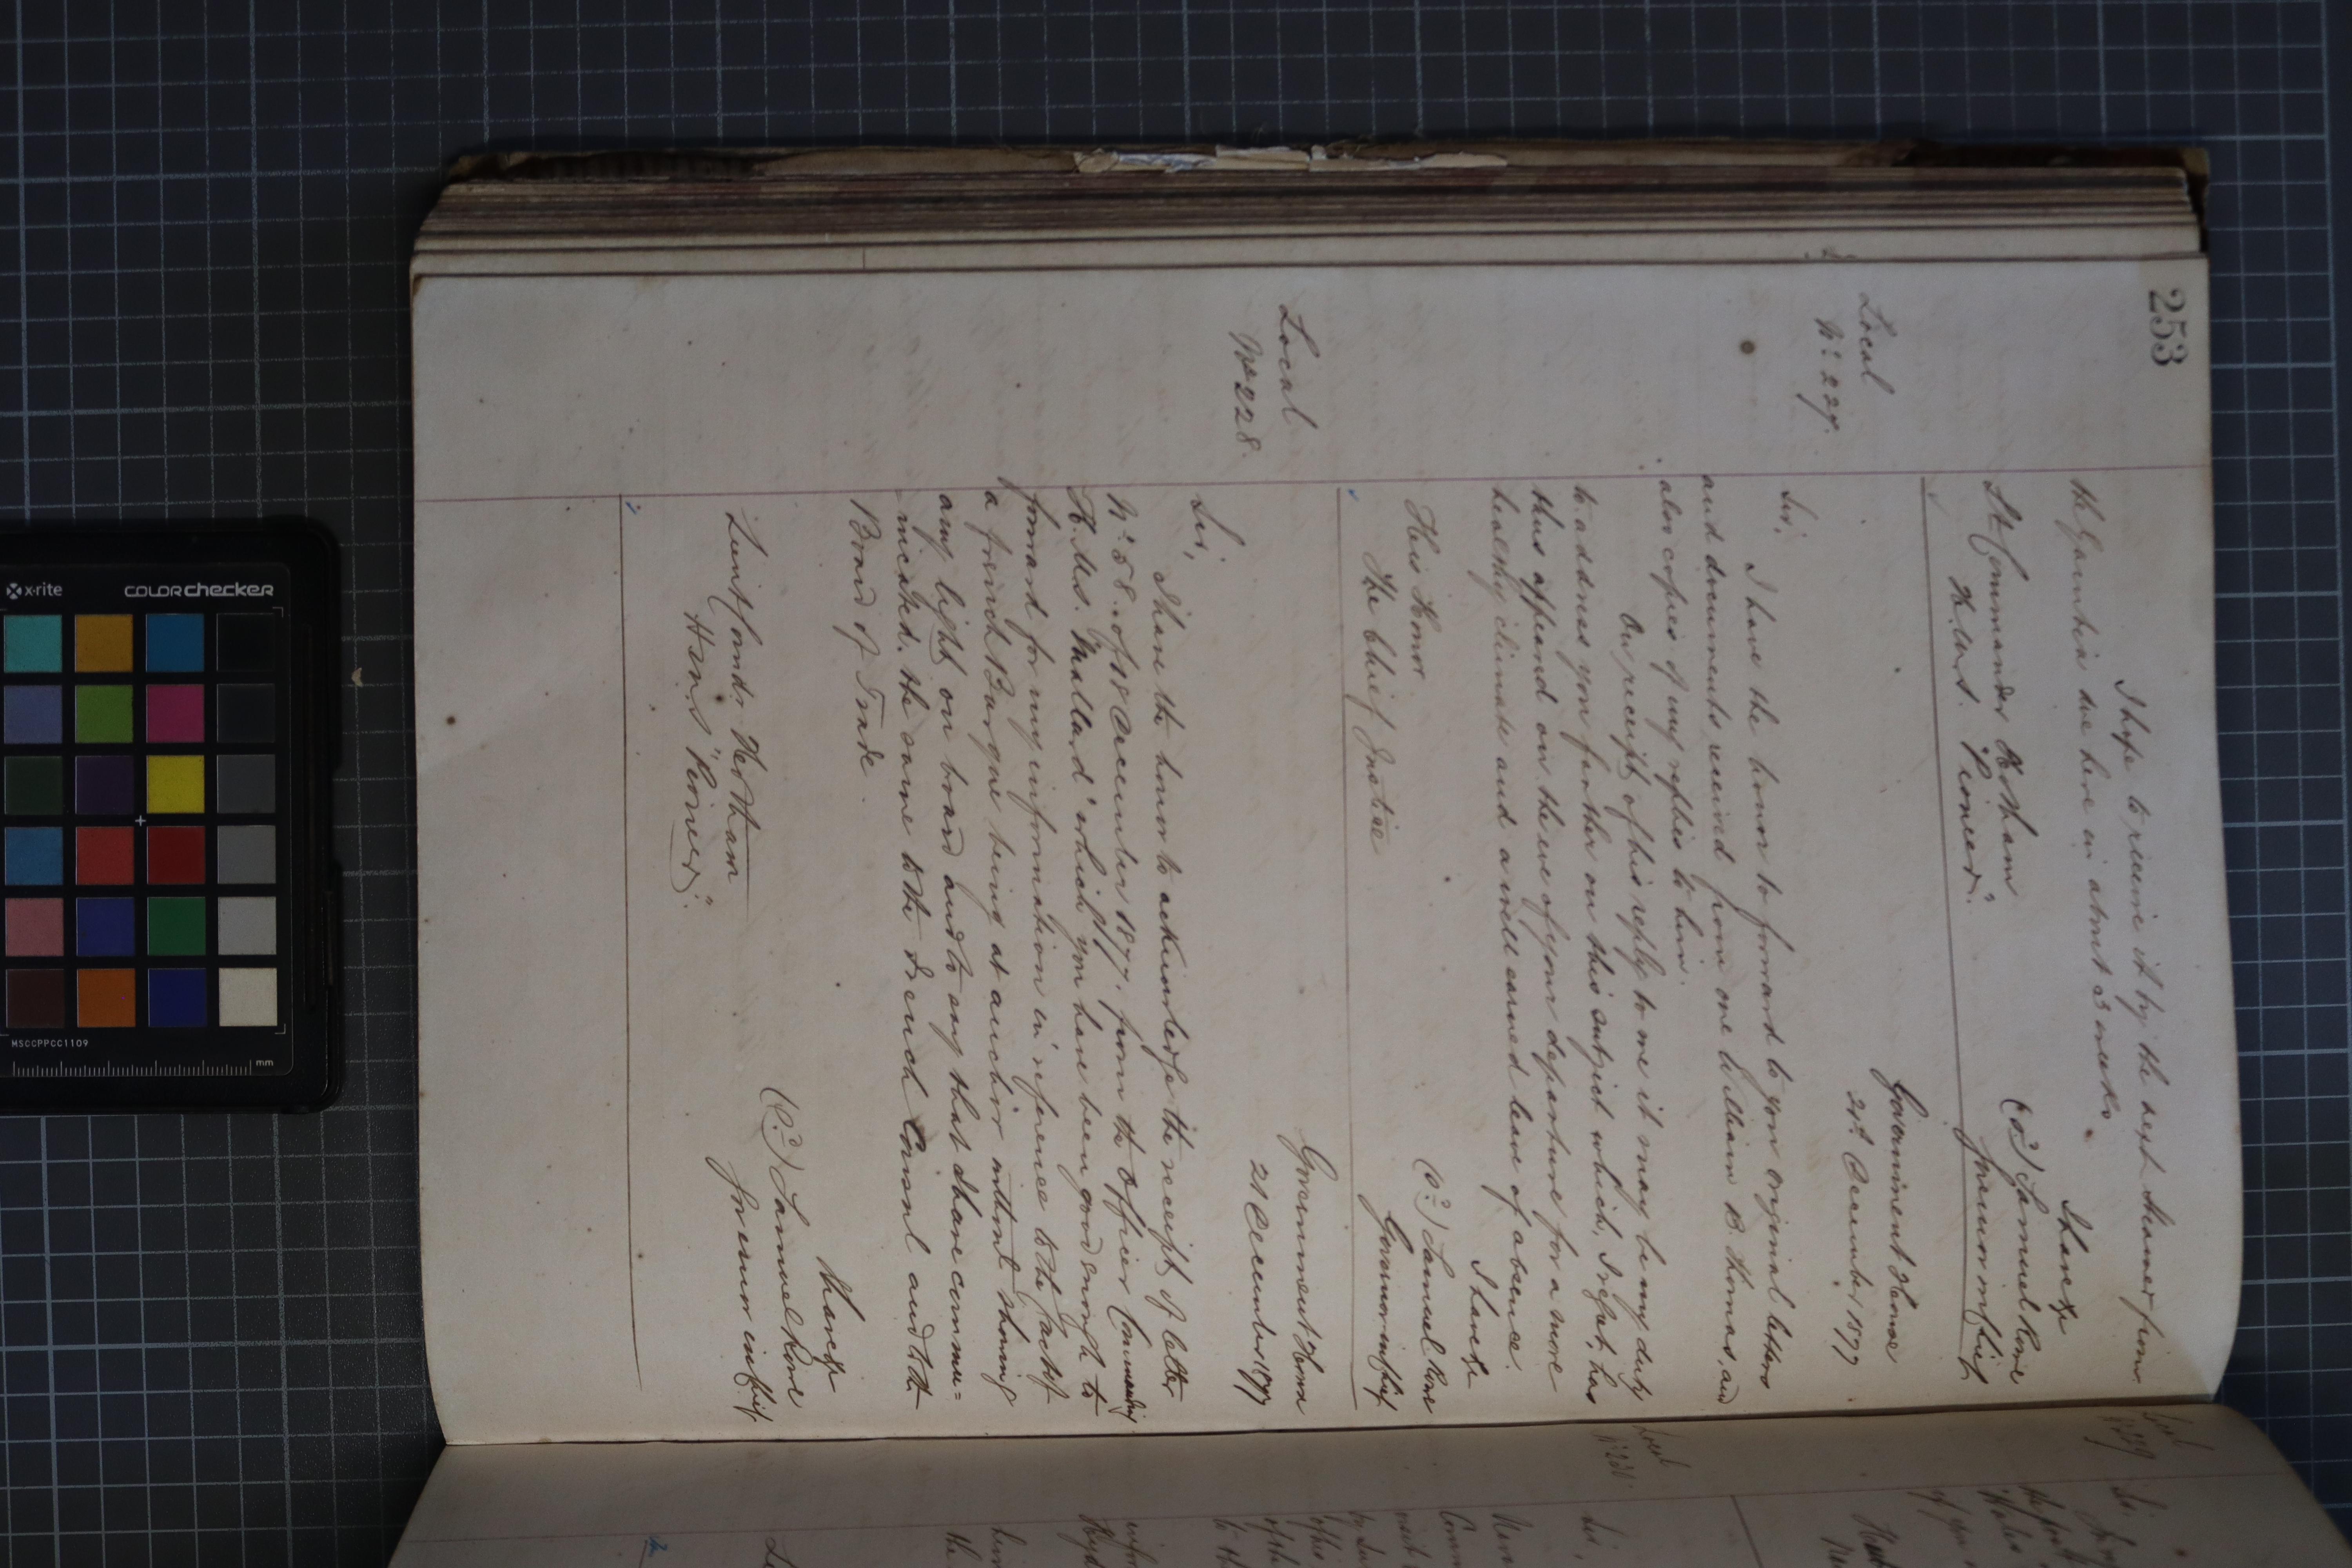 253
I hope to receive it by the next steamer from
the Gambia due here in about 3 weeks
I have &c
(sd) Samuel Rowe
Governor in Chief
Lt Commander Hotham
H.M.S. "Pioneer".
Local
No. 227.
Government House
21st December 1877
Sir,
I have the honor to forward to you original letters
and documents received from one William B. Thomas, and
also copies of my replies to him.
On receipt of his reply to me it may be my duty
to address you further on this subject which, I regret, has
thus appeared on the eve of your departure for a more
healthy climate and a well earned leave of absence.
I have &c
(sd) Samuel Rowe
Governor in Chief
His Honor
The Chief Justice
Local
No 228.
Government House
21 December 1877
Sir,
I have the honor to acknowledge the receipt of letter
No. 58. of 18 December 1877, from the Officer Commanding
H.M.S. "Mallard" which you have been good enough to
forward for my information in reference to the fact of
a french Barque being at anchor without showing
any light on board and to say that I have commu=
nicated the same to the French Consul and to the
Board of Trade.
I have &c
(sd) Samuel Rowe
Governor in Chief.
Lieut Comdr Hotham
H.M.S "Pioneer".
Local
No 229
Sir,
of you
Local
No 230.
Sir,
the
x-rite
COLORchecker
MSCCPPCC1109
mm